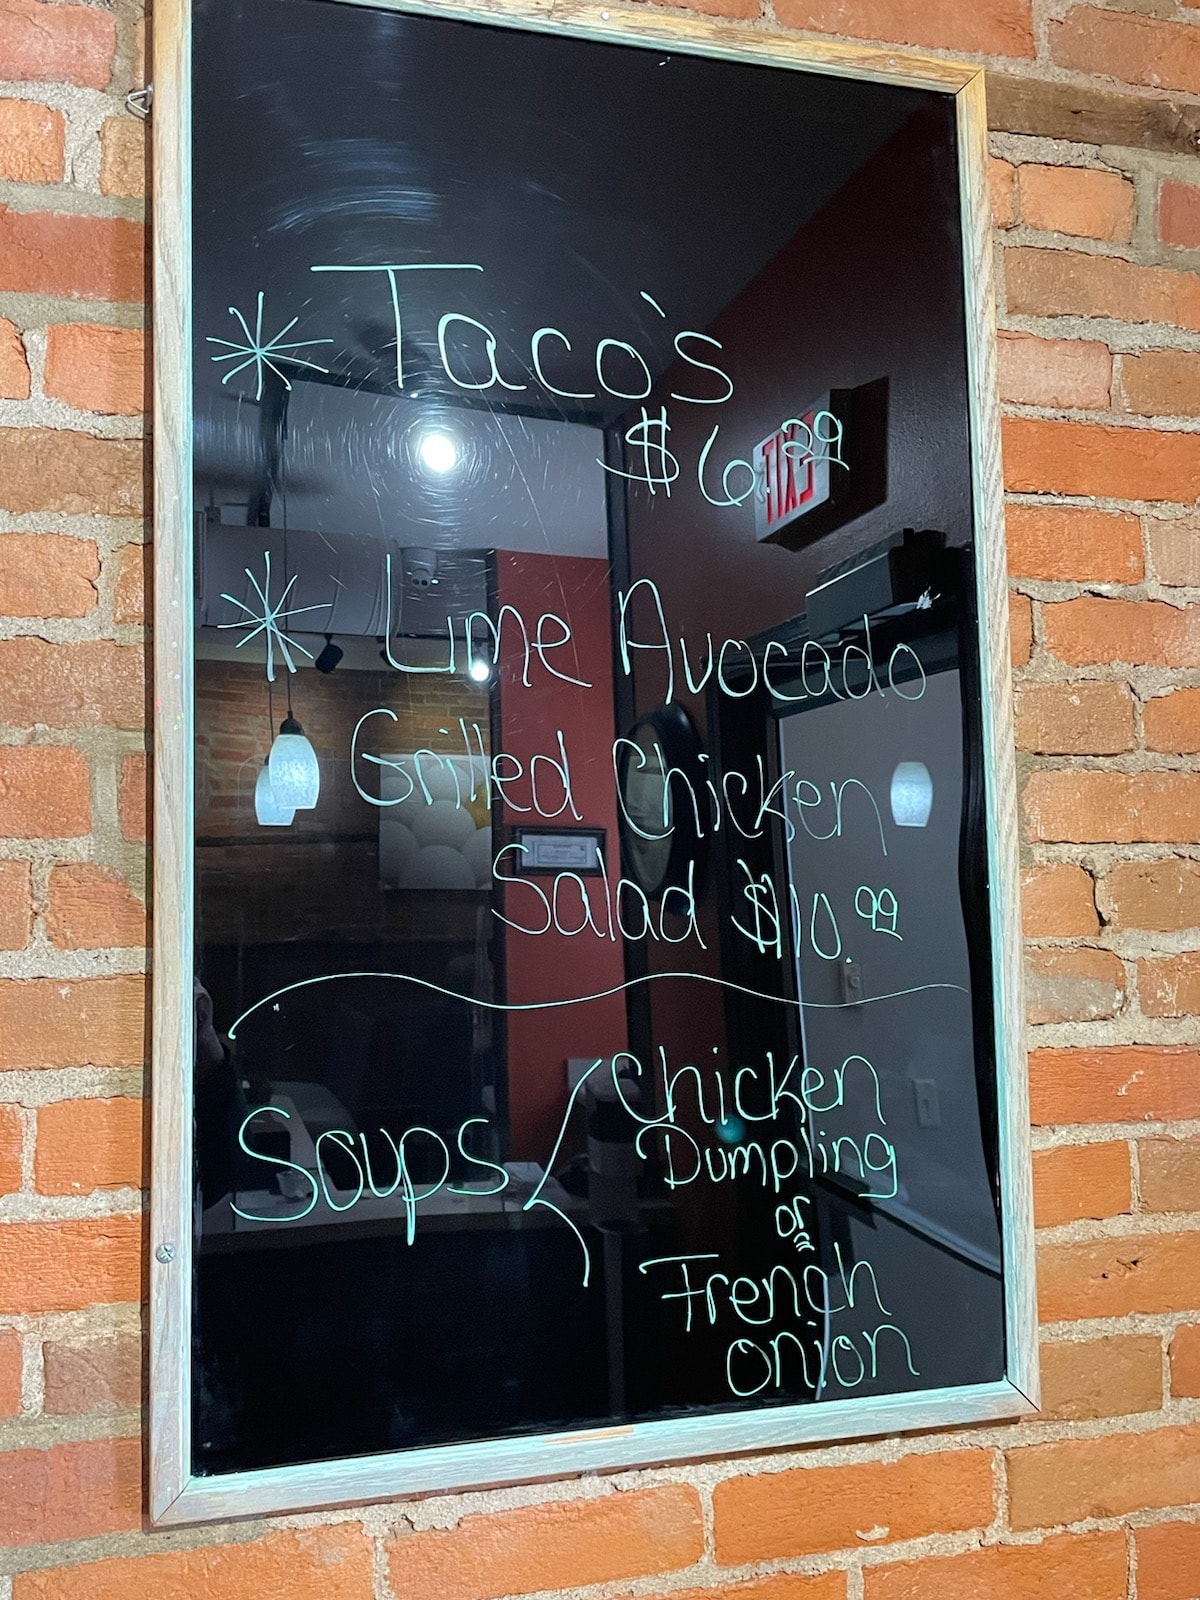 * Taco's
$6.29
* Lime Avocado
Grilled Chicken
Salad $10.99
Soups < Chicken
Dumpling
or
French
onion
EXIT